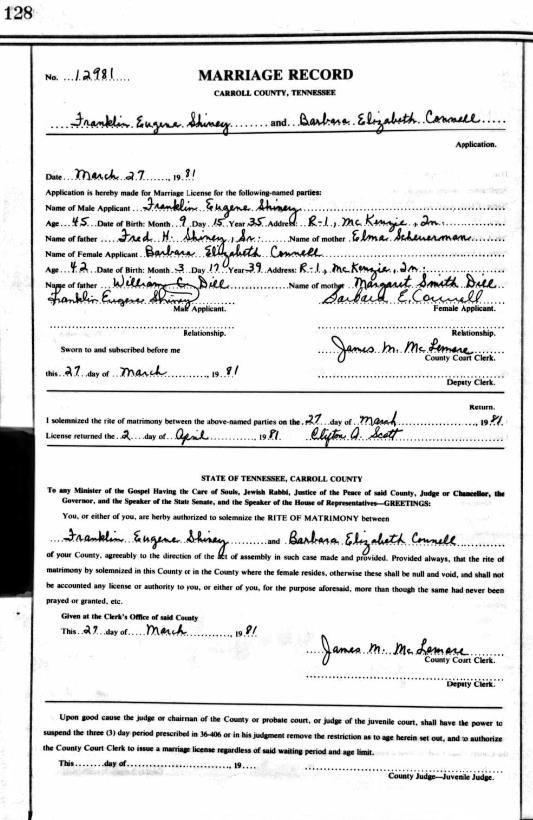 128
No. 12981 MARRIAGE RECORD
CARROLL COUNTY, TENNESSEE
Franklin Eugene Shiney and Barbara Elizabeth Connell
Application.
Date March 27, 1981
Application is hereby made for Marriage License for the following-named parties:
Name of Male Applicant Franklin Eugene Shiney
Age 45 Date of Birth: Month 9 Day 15 Year 35 Address: R-1, McKenzie, Tn.
Name of father Fred H. Shiney, Sr. Name of mother Elma Scheuerman
Name of Female Applicant Barbara Elizabeth Connell
Age 42 Date of Birth: Month 3 Day 17 Year 39 Address: R-1, McKenzie, Tn.
Name of father William C. Dill Name of mother Margaret Smith Dill
Franklin Eugene Shiney Barbara E. Connell
Male Applicant. Female Applicant.
Relationship. Relationship.
Sworn to and subscribed before me James M. McLemore
County Court Clerk.
this 27 day of March, 1981
Deputy Clerk.
Return.
I solemnized the rite of matrimony between the above-named parties on the 27 day of March, 1981
License returned the 2 day of April 1981 Clifton A. Scott
STATE OF TENNESSEE, CARROLL COUNTY
To any Minister of the Gospel Having the Care of Souls, Jewish Rabbi, Justice of the Peace of said County, Judge or Chancellor, the
Governor, and the Speaker of the State Senate, and the Speaker of the House of Representatives—GREETINGS:
You, or either of you, are herby authorized to solemnize the RITE OF MATRIMONY between
Franklin Eugene Shiney and Barbara Elizabeth Connell
of your County, agreeably to the direction of the Act of assembly in such case made and provided. Provided always, that the rite of
matrimony by solemnized in this County or in the County where the female resides, otherwise these shall be null and void, and shall not
be accounted any license or authority to you, or either of you, for the purpose aforesaid, more than though the same had never been
prayed or granted, etc.
Given at the Clerk's Office of said County
This 27 day of March, 1981
James M. McLemore
County Court Clerk.
Deputy Clerk.
Upon good cause the judge or chairman of the County or probate court, or judge of the juvenile court, shall have the power to
suspend the three (3) day period prescribed in 36-406 or in his judgment remove the restriction as to age herein set out, and to authorize
the County Court Clerk to issue a marriage license regardless of said waiting period and age limit.
This day of , 19
County Judge—Juvenile Judge.